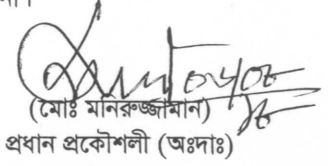 (মোঃ মনিরুজ্জামান)
প্রধান প্রকৌশলী (অঃদাঃ)